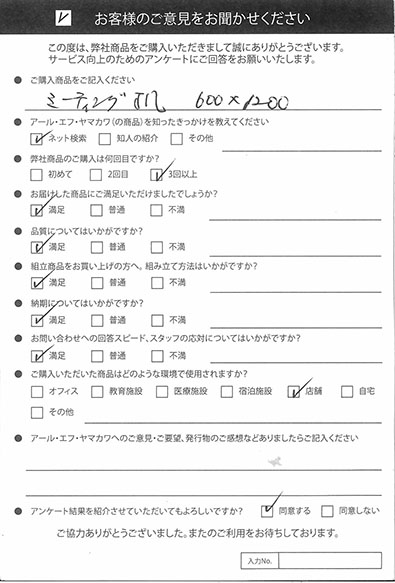 お客様のご意見をお聞かせください
この度は、弊社商品をご購入いただきまして誠にありがとうございます。
サービス向上のためのアンケートにご回答をお願いいたします。
● ご購入商品をご記入ください
ミーティング机 600×1200
● アール・エフ・ヤマカワ(の商品)を知ったきっかけを教えてください
ネット検索 知人の紹介 その他
● 弊社商品のご購入は何回目ですか?
初めて 2回目 3回以上
● お届けした商品にご満足いただけましたでしょうか?
満足 普通 不満
● 品質についてはいかがですか?
満足 普通 不満
● 組立商品をお買い上げの方へ。組み立て方法はいかがですか?
満足 普通 不満
● 納期についてはいかがですか?
満足 普通 不満
● お問い合わせへの回答スピード、スタッフの応対についてはいかがですか?
満足 普通 不満
● ご購入いただいた商品はどのような環境で使用されますか?
オフィス 教育施設 医療施設 宿泊施設 店舗 自宅
その他
● アール・エフ・ヤマカワへのご意見・ご要望、発行物のご感想などありましたらご記入ください
● アンケート結果を紹介させていただいてもよろしいですか? 同意する 同意しない
ご協力ありがとうございました。またのご利用をお待ちしております。
入力No.